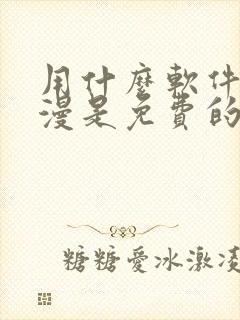 用什麼軟件
漫是免費的
糖糖愛冰激凌